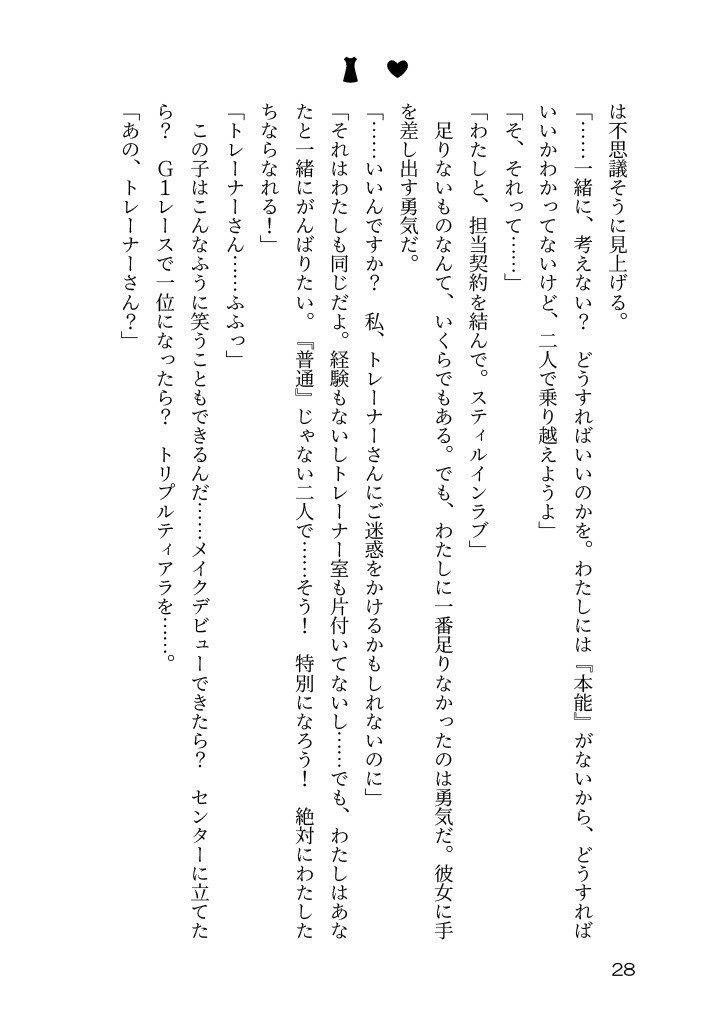 は不思議そうに見上げる。
「……一緒に、考えない？　どうすればいいのかを。わたしには『本能』がないから、どうすれば
いいかわかってないけど、二人で乗り越えようよ」
「そ、それって……」
「わたしと、担当契約を結んで。スティルインラブ」
　足りないものなんて、いくらでもある。でも、わたしに一番足りなかったのは勇気だ。彼女に手
を差し出す勇気だ。
「……いいんですか？　私、トレーナーさんにご迷惑をかけるかもしれないのに」
「それはわたしも同じだよ。経験もないしトレーナー室も片付いてないし……でも、わたしはあな
たと一緒にがんばりたい。『普通』じゃない二人で……そう！　特別になろう！　絶対にわたした
ちならなれる！」
「トレーナーさん……ふふっ」
　この子はこんなふうに笑うこともできるんだ……メイクデビューできたら？　センターに立てた
ら？　Ｇ１レースで一位になったら？　トリプルティアラを……。
「あの、トレーナーさん？」
28